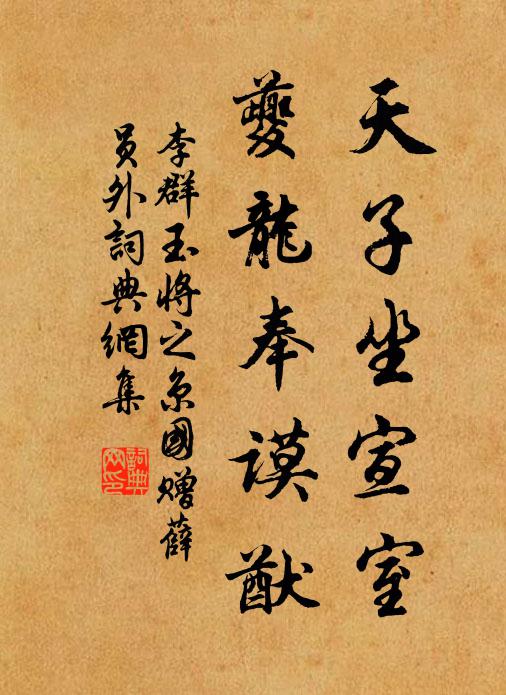 天子坐宣室
夔龍奉謨猷
李群玉將之京國贈薛
員外詞典網集
詞典網印